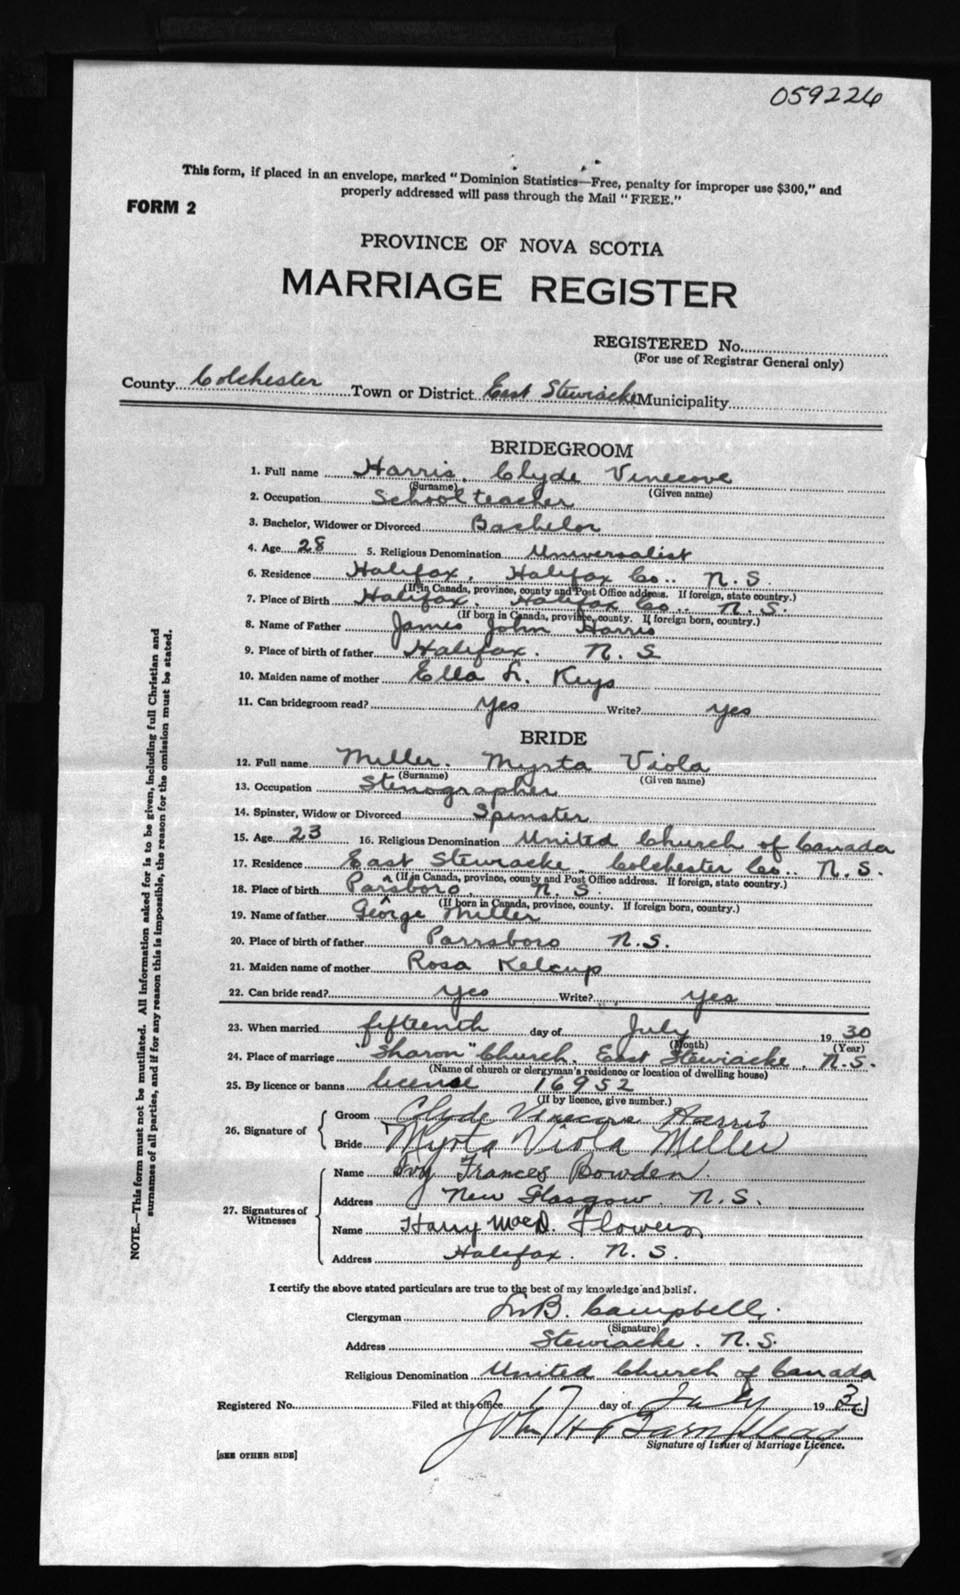 059226
This form, if placed in an envelope, marked "Dominion Statistics—Free, penalty for improper use $300," and
properly addressed will pass through the Mail "FREE."
FORM 2
PROVINCE OF NOVA SCOTIA
MARRIAGE REGISTER
REGISTERED No.
(For use of Registrar General only)
County Colchester Town or District East Stewiacke Municipality
BRIDEGROOM
1. Full name Harris, Clyde Vinecove
(Surname) (Given name)
2. Occupation School teacher
3. Bachelor, Widower or Divorced Bachelor
4. Age 28 5. Religious Denomination Universalist
6. Residence Halifax, Halifax Co.. N.S.
(If in Canada, province, county and Post Office address. If foreign, state country.)
7. Place of Birth Halifax, Halifax Co.. N.S.
(If born in Canada, province, county. If foreign born, country.)
8. Name of Father James John Harris
9. Place of birth of father Halifax. N.S
10. Maiden name of mother Ella L. Keys
11. Can bridegroom read? yes Write? yes
BRIDE
12. Full name Miller. Myrta Viola
(Surname) (Given name)
13. Occupation Stenographer
14. Spinster, Widow or Divorced Spinster
15. Age 23 16. Religious Denomination United Church of Canada
17. Residence East Stewiacke, Colchester Co.. N.S.
(If in Canada, province, county and Post Office address. If foreign, state country.)
18. Place of birth Parsboro, N.S.
(If born in Canada, province, county. If foreign born, country.)
19. Name of father George Miller
20. Place of birth of father Parrsboro N.S.
21. Maiden name of mother Rosa Kelcup
22. Can bride read? yes Write? yes
23. When married fifteenth day of July 1930
(Month) (Year)
24. Place of marriage "Sharon" Church, East Stewiacke, N.S.
(Name of church or clergyman's residence or location of dwelling house)
25. By licence or banns license 16952
(If by licence, give number.)
26. Signature of
Groom Clyde Vinecove Harris
Bride Myrta Viola Miller
27. Signatures of Witnesses
Name Ivy Frances Bowden
Address New Glasgow, N.S.
Name Harry MacD. Flowers
Address Halifax. N.S.
I certify the above stated particulars are true to the best of my knowledge and belief.
Clergyman Campbell.
(Signature)
Address Stewiacke. N.S.
Religious Denomination United Church of Canada
Registered No. Filed at this office 17 day of July 1930
John
Signature of Issuer of Marriage Licence.
[SEE OTHER SIDE]
NOTE.—This form must not be mutilated. All information asked for is to be given, including full Christian and
surnames of all parties, and if for any reason this is impossible, the reason for the omission must be stated.